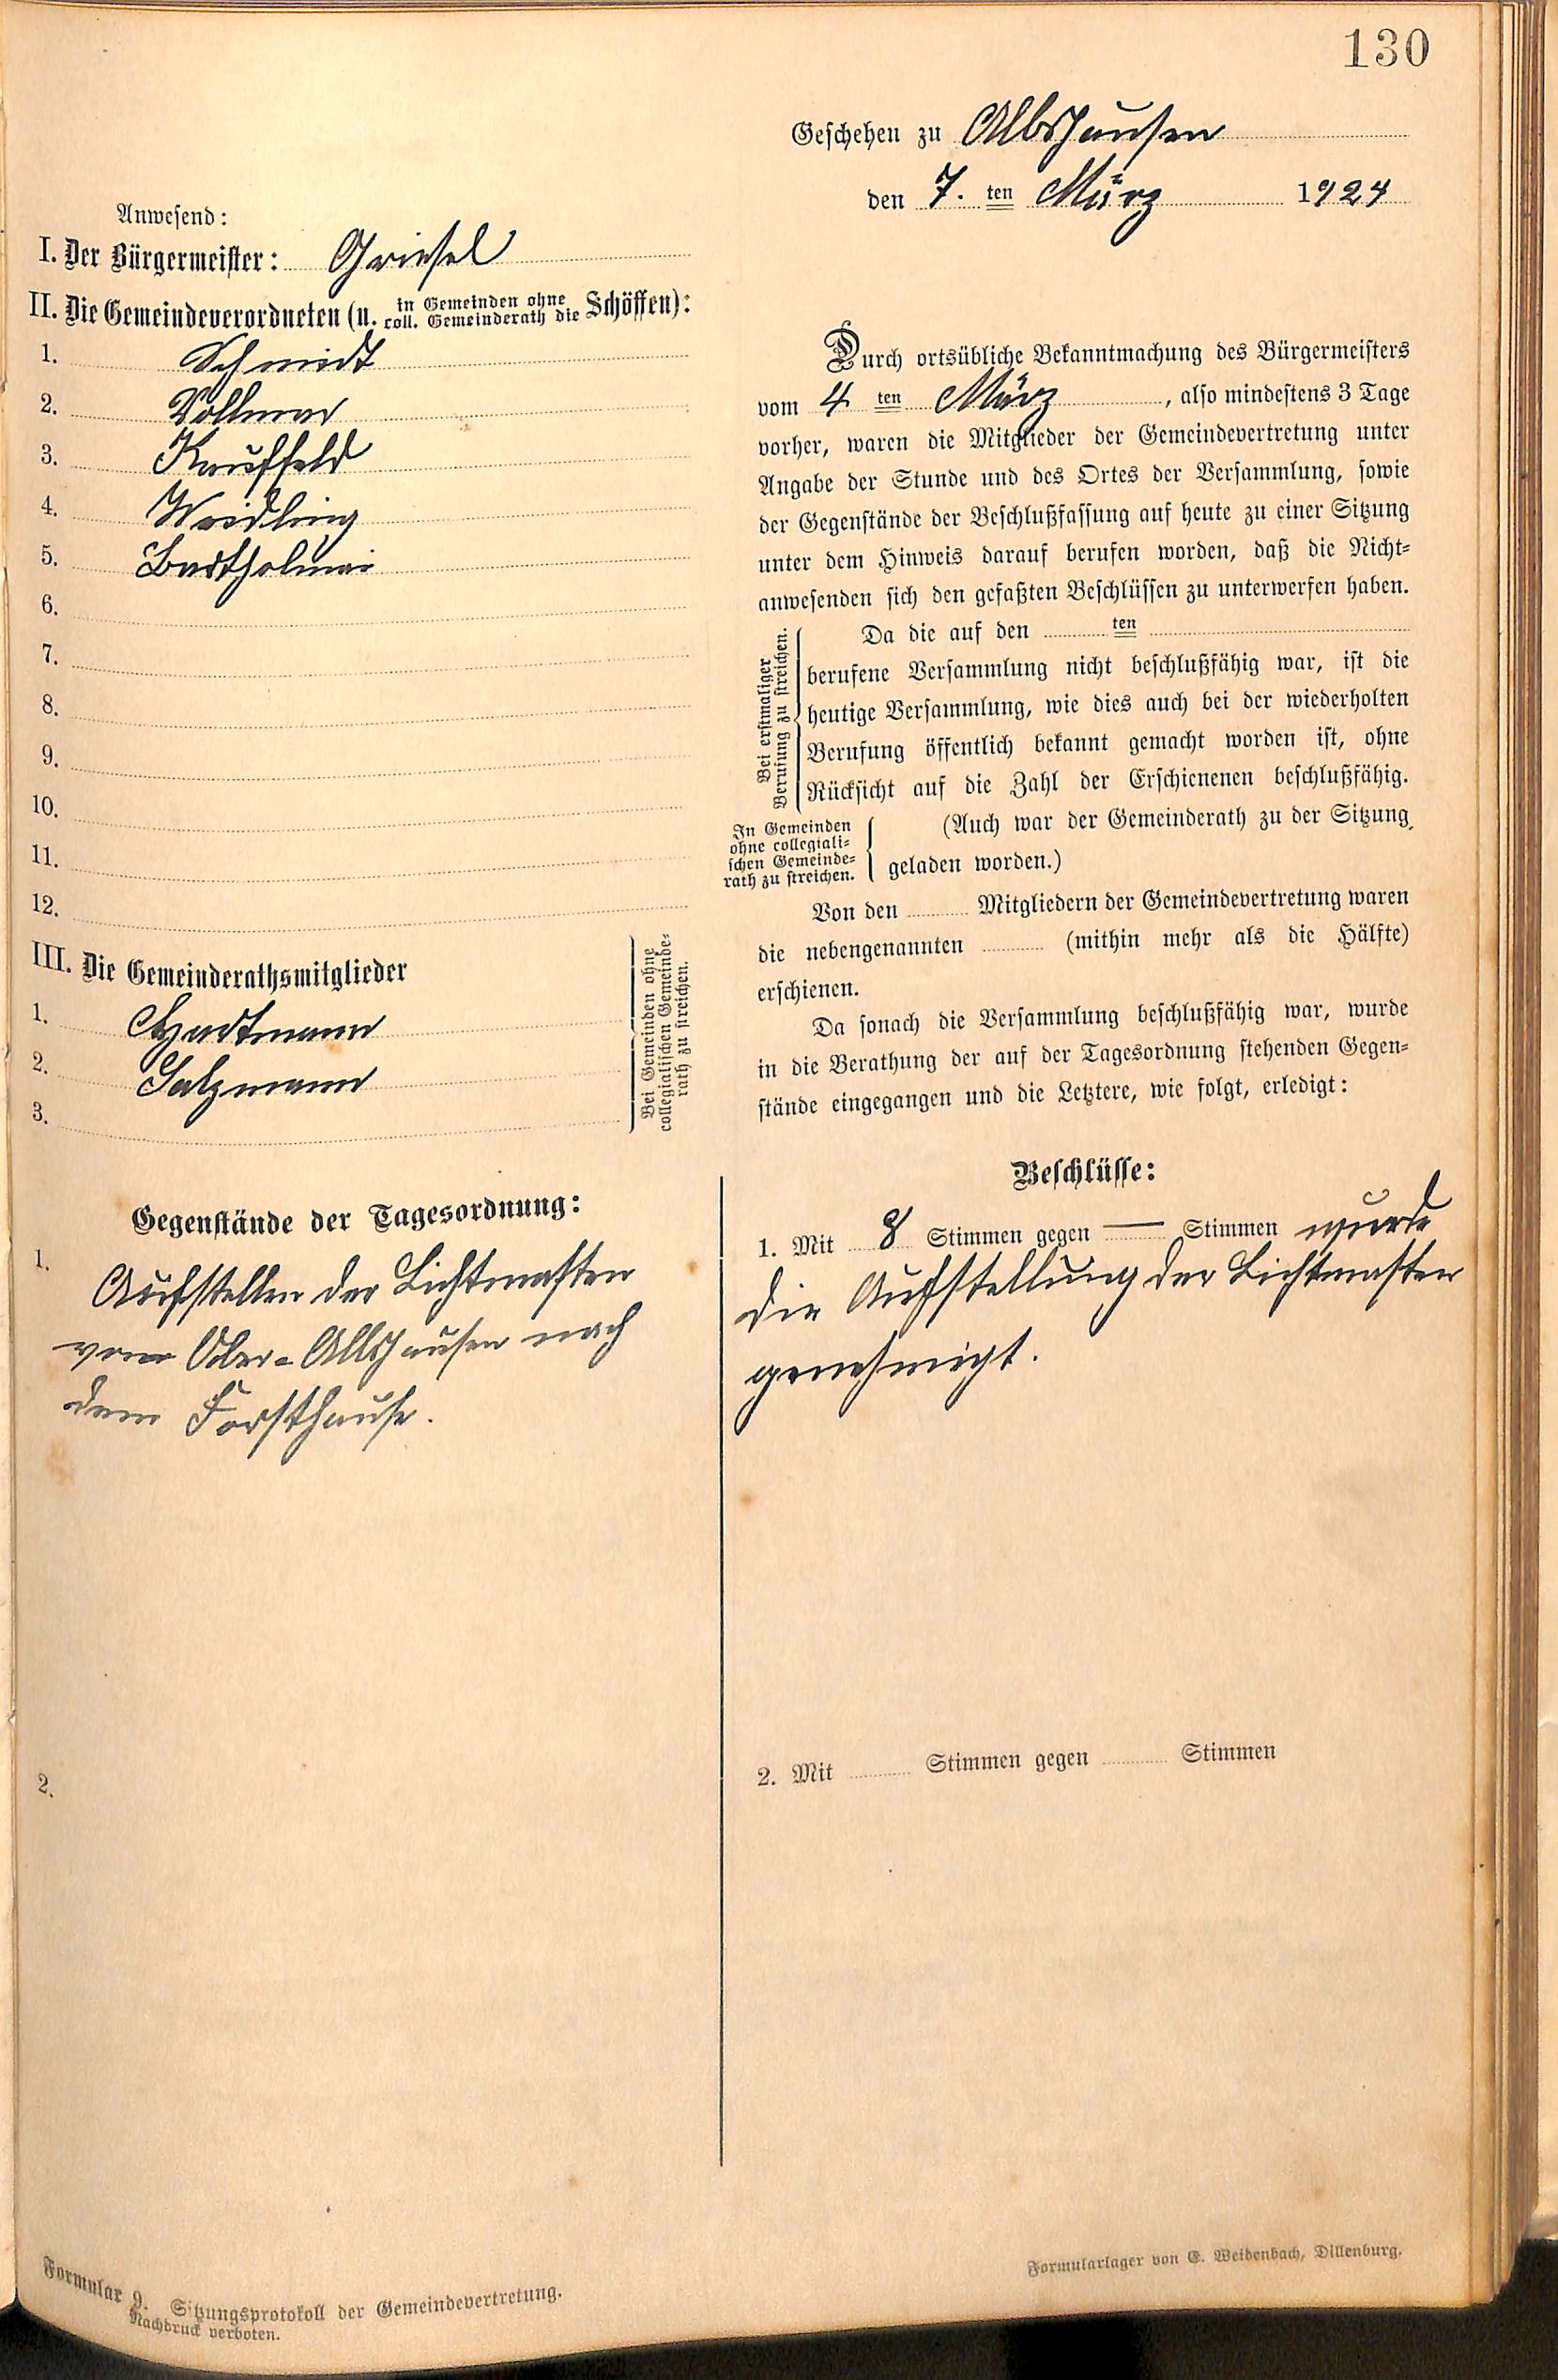 130
Geschehen zu Albshausen
den 7. ten März 1924
Anwesend:
I. Der Bürgermeister: Griesel
II. Die Gemeindeverordneten (u. in Gemeinden ohne coll. Gemeinderath die Schöffen):
1. Schmidt
2. Vollmar
3. Kauffeld
4. Weidling
5. Bartholmai
6.
7.
8.
9.
10.
11.
12.
III. Die Gemeinderathsmitglieder
1. Hartmann
2. Salzmann
3.
Bei Gemeinden ohne
collegialischen Gemeinde-
rath zu streichen.
Durch ortsübliche Bekanntmachung des Bürgermeisters
vom 4 ten März, also mindestens 3 Tage
vorher, waren die Mitglieder der Gemeindevertretung unter
Angabe der Stunde und des Ortes der Versammlung, sowie
der Gegenstände der Beschlußfassung auf heute zu einer Sitzung
unter dem Hinweis darauf berufen worden, daß die Nicht-
anwesenden sich den gefaßten Beschlüssen zu unterwerfen haben.
Bei erstmaliger
Berufung zu streichen.
Da die auf den ten
berufene Versammlung nicht beschlußfähig war, ist die
heutige Versammlung, wie dies auch bei der wiederholten
Berufung öffentlich bekannt gemacht worden ist, ohne
Rücksicht auf die Zahl der Erschienenen beschlußfähig.
In Gemeinden
ohne collegiali-
schen Gemeinde-
rath zu streichen.
(Auch war der Gemeinderath zu der Sitzung
geladen worden.)
Von den Mitgliedern der Gemeindevertretung waren
die nebengenannten (mithin mehr als die Hälfte)
erschienen.
Da sonach die Versammlung beschlußfähig war, wurde
in die Berathung der auf der Tagesordnung stehenden Gegen-
stände eingegangen und die Letztere, wie folgt, erledigt:
Gegenstände der Tagesordnung:
1.
Aufstellen der Lichtmasten
vom Ober-Albshausen nach
dem Forsthause.
2.
Beschlüsse:
1. Mit 8 Stimmen gegen — Stimmen wurde
die Aufstellung der Lichtmasten
genehmigt.
2. Mit Stimmen gegen Stimmen
Formular 9. Sitzungsprotokoll der Gemeindevertretung.
Nachdruck verboten.
Formularlager von E. Weidenbach, Dillenburg.